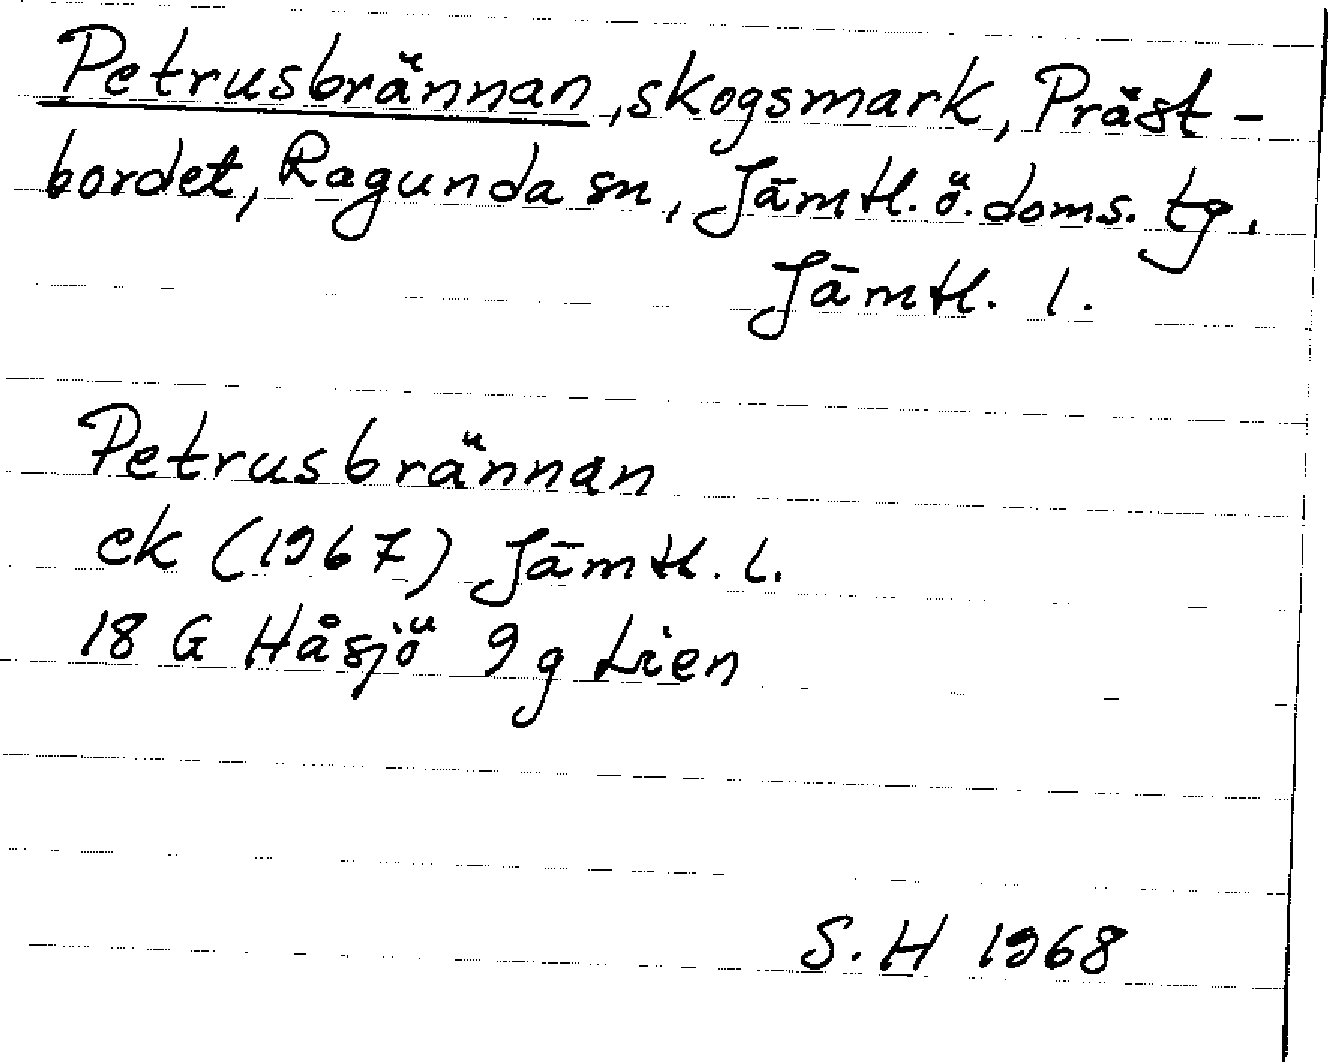 Petrusbrännan, skogsmark, Präst-
bordet, Ragunda sn, Jämtl. ö. doms. tg.
Jämtl. l.
Petrusbrännan
ek (1967) Jämtl. l.
18 G Håsjö 9 g Lien
S. H 1968